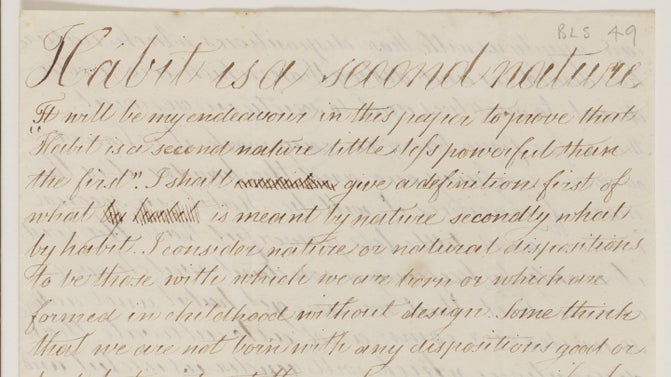 BLS 49
Habit is a second nature
It will be my endeavour in this paper to prove that
"Habit is a second nature little less powerful than
the first". I shall give a definition first of
what is meant by nature secondly what
by habit. I consider nature or natural dispositions
to be those with which we are born or which are
formed in childhood without design. Some think
that we are not born with any dispositions good or